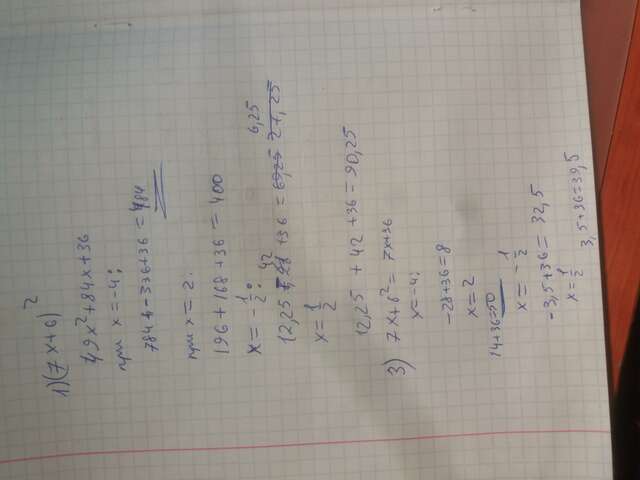 1) (7x+6)²
49x²+84x+36
при x=-4:
784-336+36=484
при x=2.
196+168+36=400
x=-1/2:
12,25-42+36= 6,25
x=1/2
12,25+42+36=90,25
3) 7x+6²=7x+36
x=-4:
-28+36=8
x=2
14+36=50
x=-1/2
-3,5+36=32,5
x=1/2
3,5+36=39,5